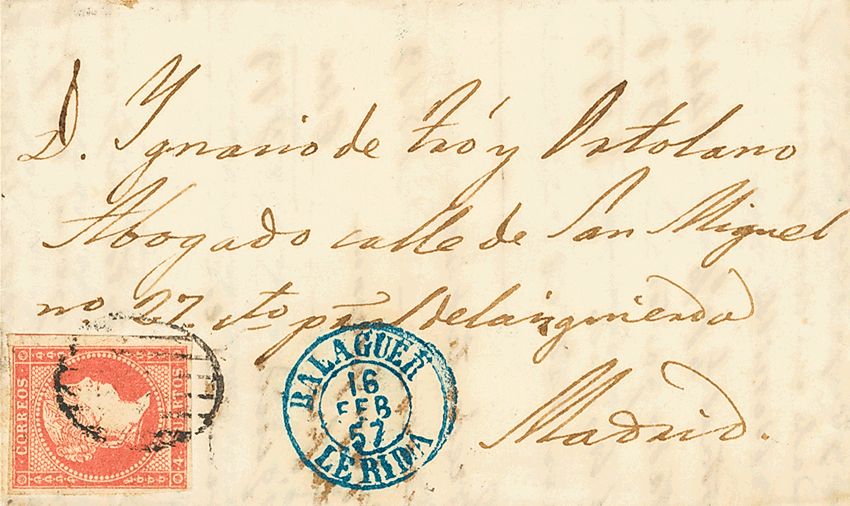 D. Ygnacio de Fró y Ortolano
Abogado calle de San Miguel
no. 27. cto pral de la izquierda
Madrid.
CORREOS
4 CUARTOS
BALAGUER
16
FEB
57
LERIDA